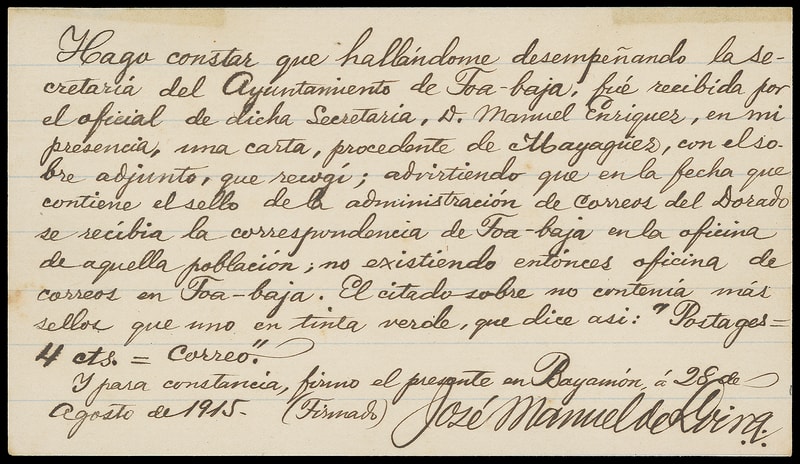 Hago constar que hallándome desempeñando la se-
cretaría del Ayuntamiento de Toa-baja, fué recibida por
el oficial de dicha Secretaría, D. Manuel Enriquez, en mi
presencia, una carta, procedente de Mayagüez, con el so-
bre adjunto, que recogí; advirtiendo que en la fecha que
contiene el sello de la administración de correos del Dorado
se recibia la correspondencia de Toa-baja en la oficina
de aquella población; no existiendo entónces oficina de
correos en Toa-baja. El citado sobre no contenía más
sellos que uno en tinta verde, que dice asi: "Postages=
4 cts. = Correo".
Y para constancia, firmo el presente en Bayamón, á 28 de
Agosto de 1915. (Firmado) José Manuel de